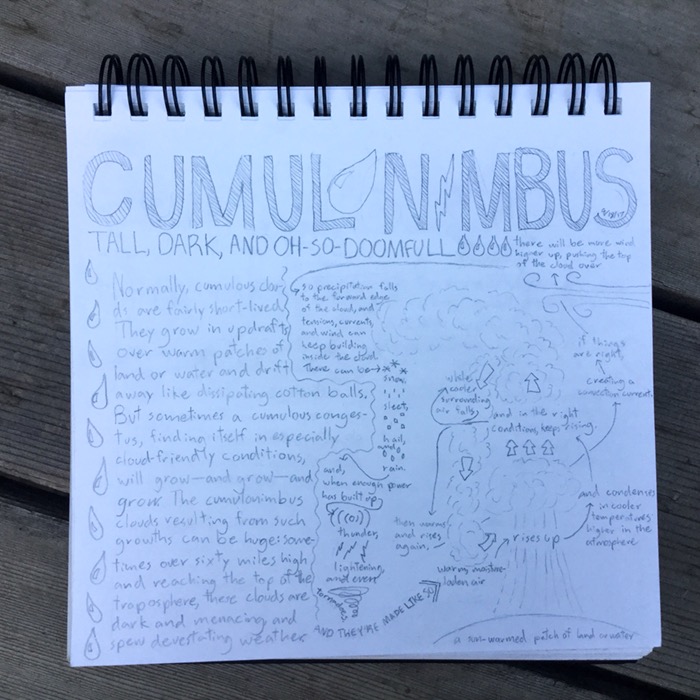 CUMULONIMBUS
TALL, DARK, AND OH-SO-DOOMFULL
Normally, cumulous clou-
ds are fairly short-lived.
They grow in updrafts
over warm patches of
land or water and drift
away like dissipating cotton balls.
But sometimes a cumulous conges-
tus, finding itself in especially
cloud-friendly conditions,
will grow—and grow—and
grow. The cumulonimbus
clouds resulting from such
growths can be huge: some-
times over sixty miles high
and reaching the top of the
troposphere, these clouds are
dark and menacing and
spew devestating weather
AND THEY'RE MADE LIKE SO
a sun-warmed patch of land or water
warm moisture-
laden air
rises up
and condenses
in cooler
temperatures
higher in the
atmosphere
creating a
convection current.
if things
are right,
there will be more wind
higher up, pushing the top
of the cloud over
so precipitation falls
to the forward edge
of the cloud, and
tensions, currents,
and wind can
keep building
inside the cloud.
There can be
snow,
sleet,
hail,
and
rain.
and,
when enough power
has built up,
thunder,
lightening,
and even
tornadoes.
while
cooler
surrounding
air falls,
then warms
and rises
again,
and in the right
conditions, keeps rising.